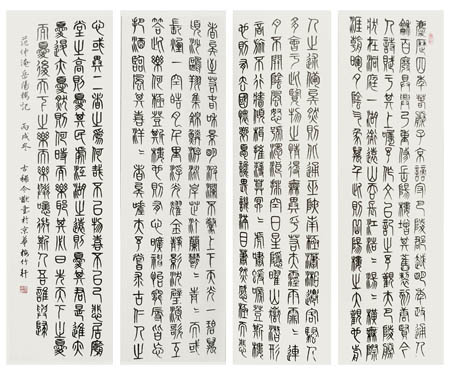 慶歷四年春滕子京謫守巴陵郡越明年政通人
和百廢具興乃重修岳陽樓增其舊制刻唐賢今
人詩賦于其上屬予作文以記之予觀夫巴陵勝
狀在洞庭一湖銜遠山吞長江浩浩湯湯橫無際
涯朝暉夕陰氣象萬千此則岳陽樓之大觀也前
人之述備矣然則北通巫峽南極瀟湘遷客騷人
多會于此覽物之情得無異乎若夫霪雨霏霏連
月不開陰風怒號濁浪排空日星隱曜山岳潛形
商旅不行檣傾楫摧薄暮冥冥虎嘯猿啼登斯樓
也則有去國懷鄉憂讒畏譏滿目蕭然感極而悲
者矣至若春和景明波瀾不驚上下天光一碧萬
頃沙鷗翔集錦鱗游泳岸芷汀蘭郁郁青青而或
長煙一空皓月千里浮光躍金靜影沉璧漁歌互
答此樂何極登斯樓也則有心曠神怡寵辱皆忘
把酒臨風其喜洋洋者矣嗟夫予嘗求古仁人之
心或異二者之為何哉不以物喜不以己悲居廟
堂之高則憂其民處江湖之遠則憂其君是進亦
憂退亦憂然則何時而樂耶其必曰先天下之憂
而憂後天下之樂而樂歟噫微斯人吾誰與歸
范仲淹岳陽樓記 丙戌冬 古稀令於京華梅竹軒